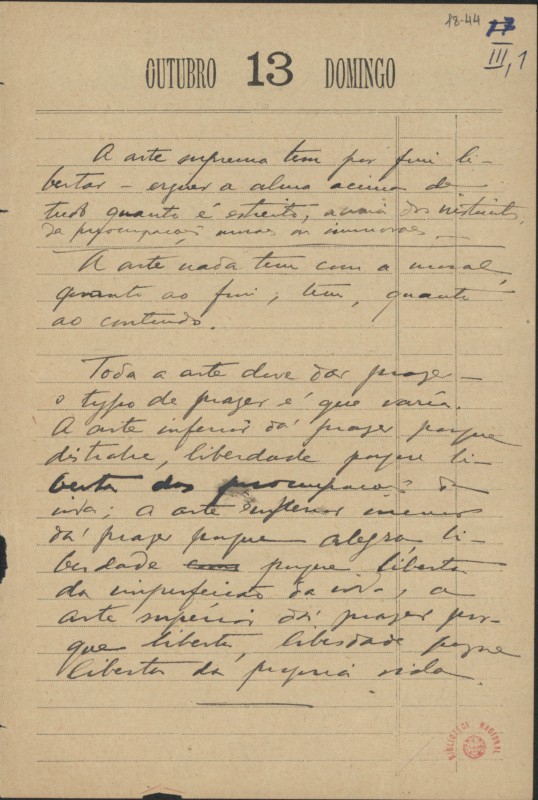 18-44
III, 1
OUTUBRO 13 DOMINGO
A arte suprema tem por fim li-
bertar — erguer a alma acima de
tudo quanto é estreito, acima dos instinctos,
das preocupações moraes ou immoraes.
A arte nada tem com a moral,
quanto ao fim; tem, quanto
ao conteudo.
Toda a arte deve dar prazer —
o typo de prazer é que varía.
A arte inferior dá prazer porque
distrahe, liberdade porque li-
berta das preocupações da
vida; a arte superior menor
dá prazer porque alegra, li-
berdade porque liberta
da imperfeição da vida; a
arte superior dá prazer por-
que liberta, liberdade porque
liberta da propria vida.
BIBLIOTECA NACIONAL